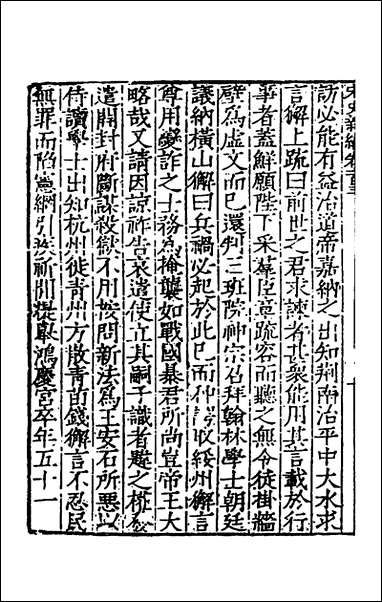 宋史新編卷一百三
訪必能有益治道帝嘉納之出知荆南治平中大水求
言獬上疏曰前世之君求諫者甚衆能用其言載於行
事者蓋鮮願陛下采羣臣章疏容而聽之無令徒掛牆
壁爲虛文而巳還判三班院神宗召拜翰林學士朝廷
議納横山獬曰兵禍必起於此巳而种諤取綏州獬言
尊用變詐之士務爲掩襲如戰國暴君所尚豈帝王大
略哉又請因諒祚告哀遣使立其嗣子識者韙之權發
遣開封府斷謀殺獄不用按問新法爲王安石所惡以
侍讀學士出知杭州徙青州方散青苗錢獬言不忍民
無罪而陷憲網引疾祈閒提舉鴻慶宫卒年五十一